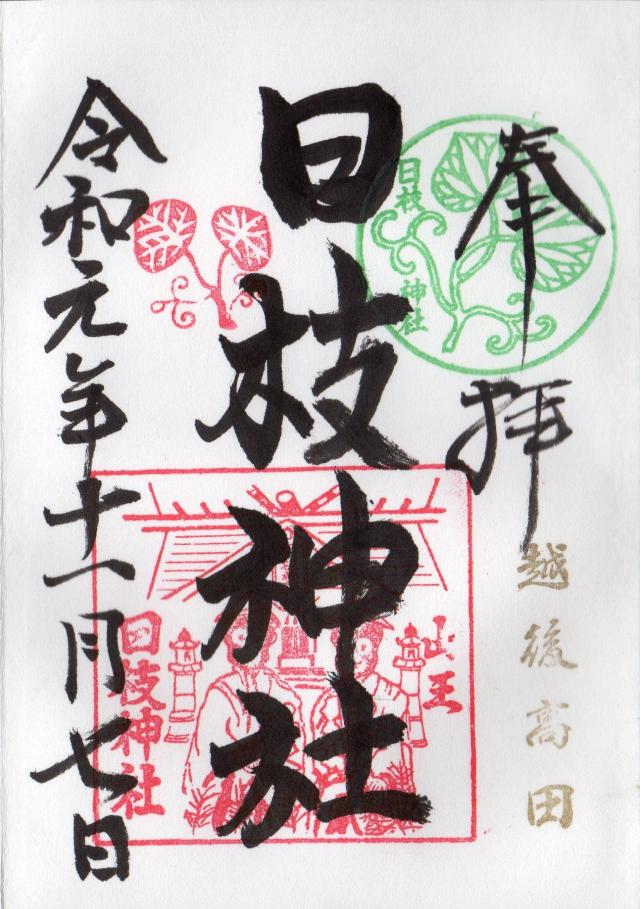 奉拝
越後高田
日枝
神社
日枝神社
山王
日枝神社
令和元年十一月七日